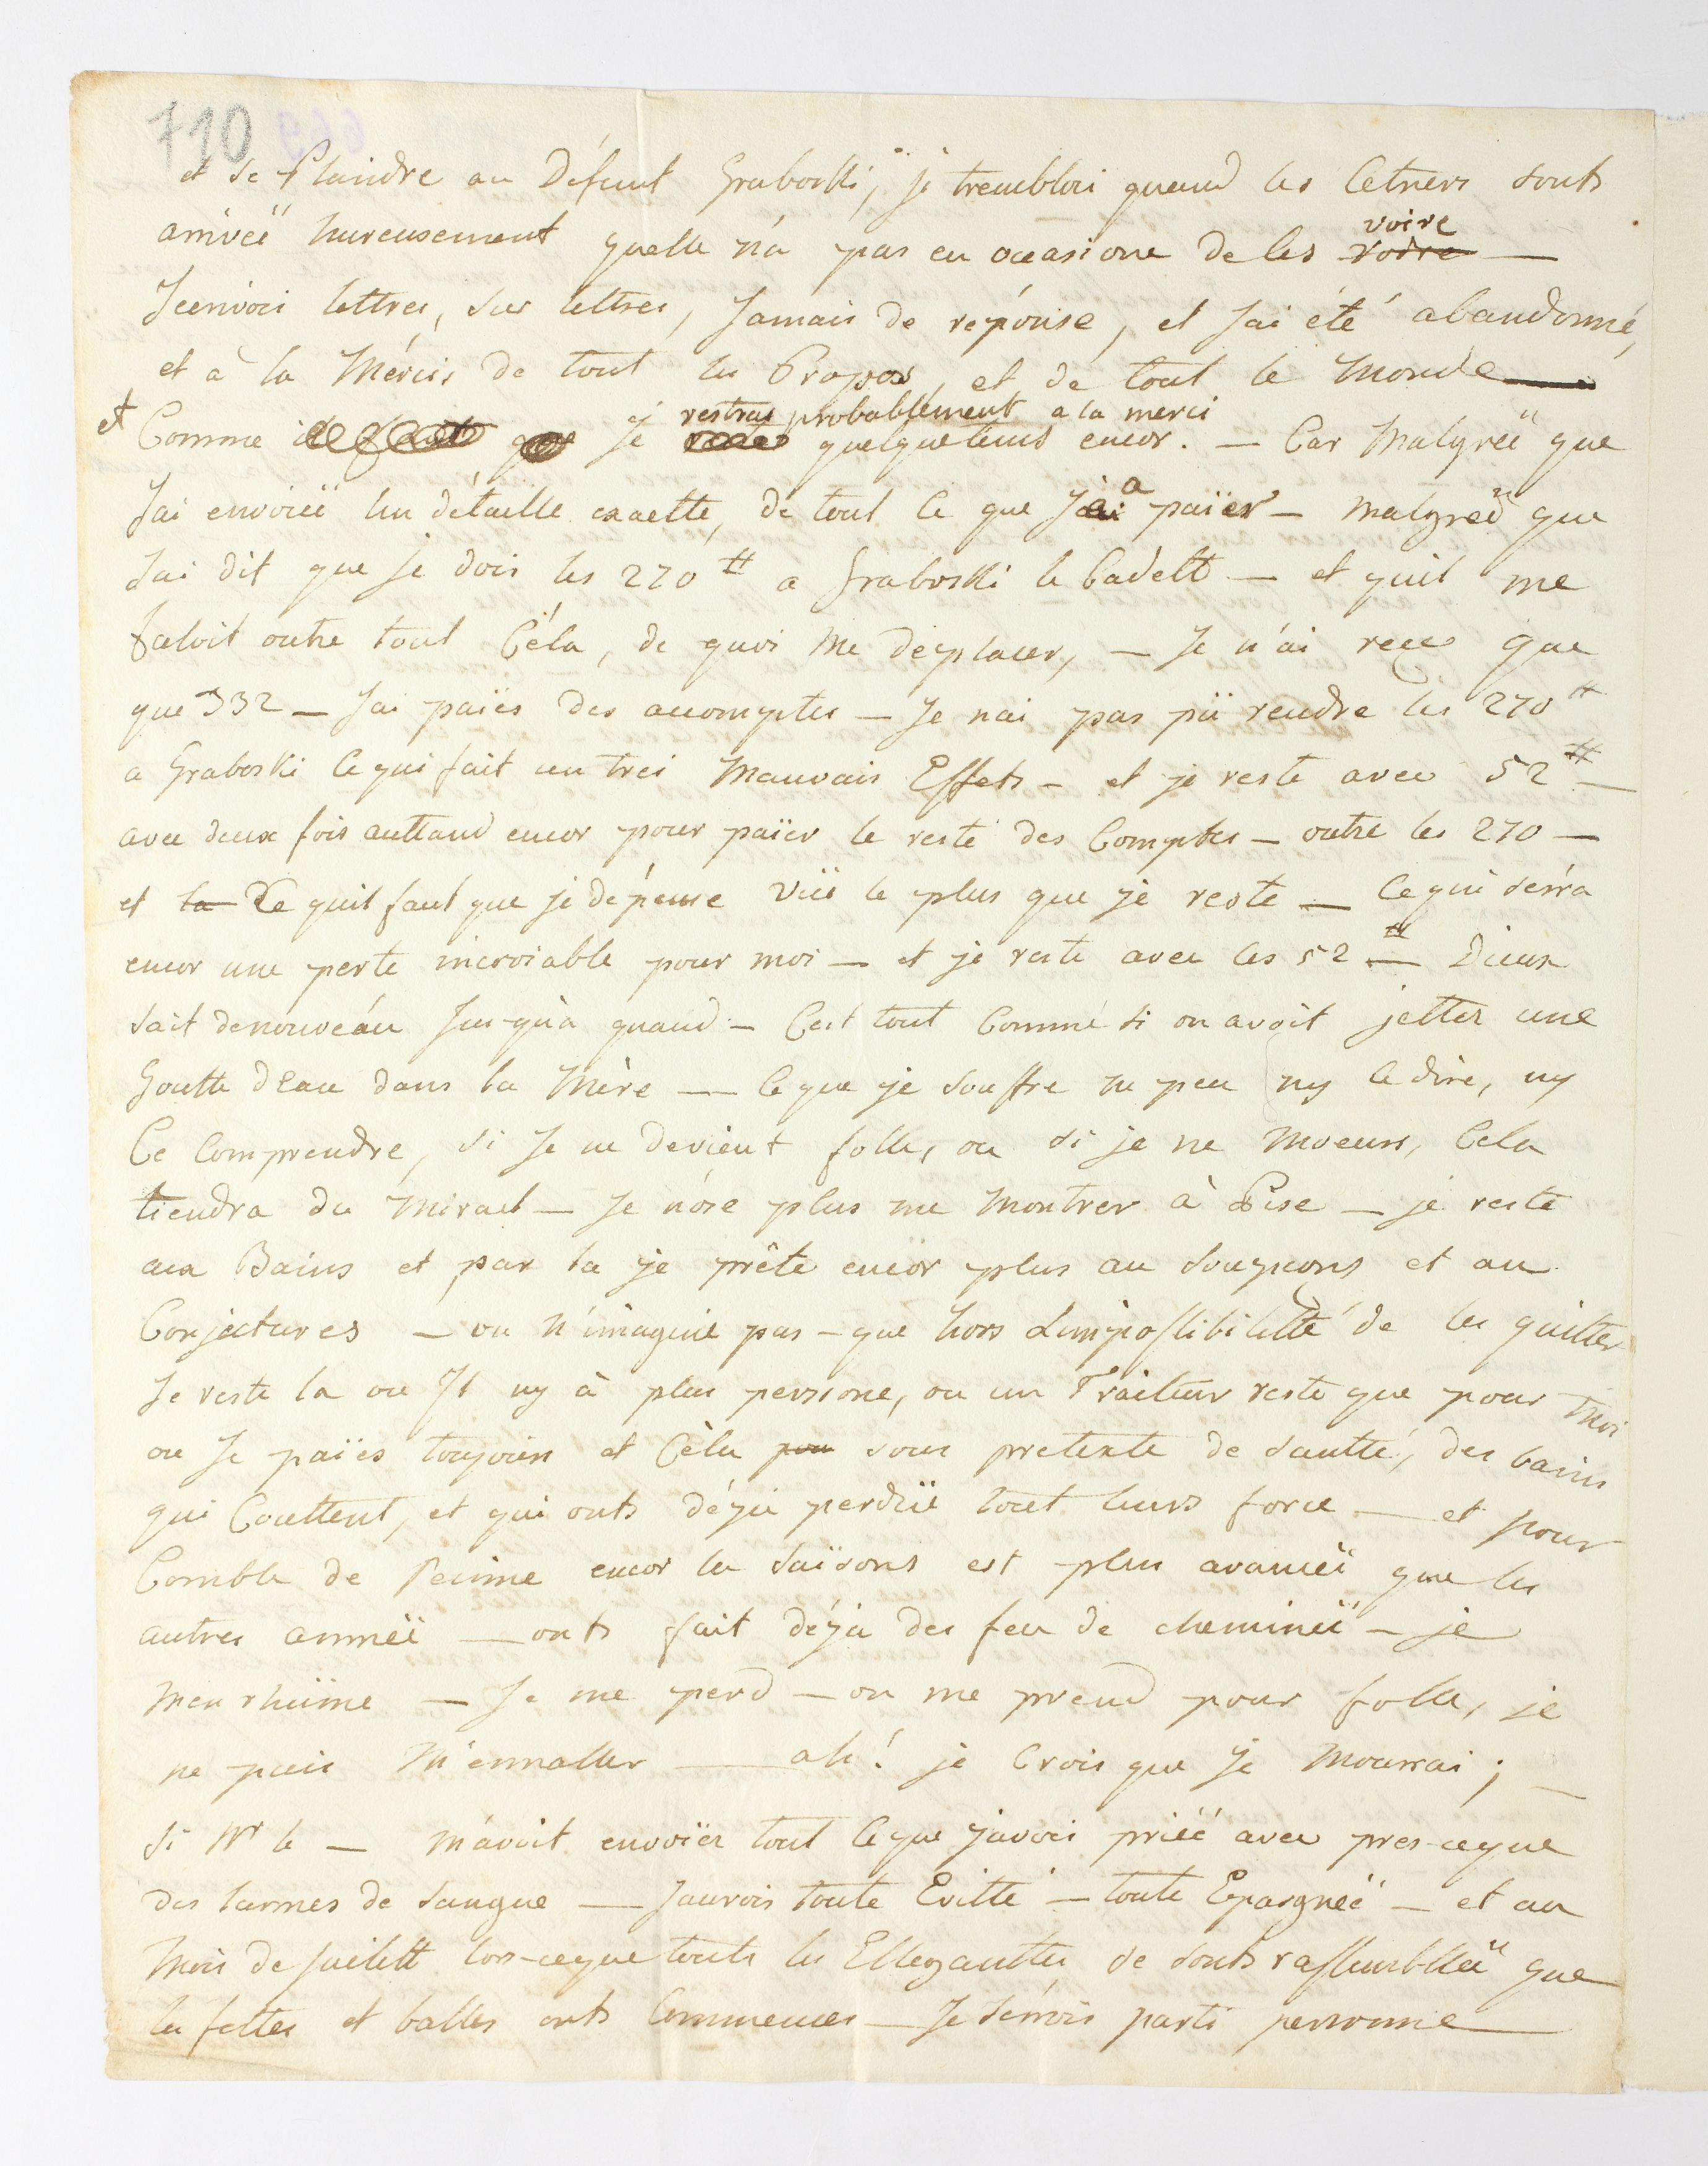 710
et se Plaindre au Défunt Graboski, je tremblois quand les Letters sonts
arrivéë hureusement quelle n'a pas eu occasione de les voire voire —
Jeenvois lettres, sur lettres, Jamais de réponse, et Jai été abandonné,
et à la Mércis de tout les Propos, et de tout le Monde —
et Comme il faut que je restrai probablement a la merci quelquetems encor. — Car Malgréë que
Jai envoiéë un détaille exactte, de tout ce que J'ai a païer — malgréë que
Jai dit que je dois les 270 # a Graboski le Cadett — et quil me
faloit outre tout Céla, de quoi me déplacer, — Je n'ai reçu que
que 332 — Jai païes des accomptes — Je nai pas pü rendre les 270 #
a Graboski Ce qui fait un trei Mauvais Effets — et je reste avec 52 # —
avec deux fois auttand encor pour païer le reste des Comptes — outre les 270 —
et la Ce quil faut que je dépense Vüë le plus que je reste — Ce qui sérra
encor une perte incroiable pour moi — et je reste avec les 52 # — Dieux
sait denouveáu Jus-qu'a quand — Cest tout Commé si on avoit jetter une
Goutte dEau dans la Mère — Ce que je souffre tu peu ny le dire, ny
Le Comprendre, si Je ne devient folle, ou si je ne Moeurs, Cela
tiendra du Mirael — Je n'óse plus me Montrer à Pise — je reste
aux Bains et par la je prête encór plus au soupçons et au
Conjectures — on n'imagine pas — que hors Limpossibilitté de les quitter
Je reste la ou Il ny à plus persone, ou un Traiteur reste que pour Moi
ou Je païes toujours et Céla pou sous pretexte de Santté, des bains
qui Couttent, et qui onts déja perdüë tout leurs force — et pour
Comble de Peinne encor la Saïsons est plus avancéë que les
autres annéë — onts fait déja des feu de cheminéë — je
Men rhüme — Je me perd — on me prend pour folle, je
ne puis M'ennaller — ah! je Crois que Je Mourrai; —
Si Mr le — m'avoit envoïer tout Ce que j'avois priéé avec pres-ceque
des larmes de Sangue — Jaurois toute Evitté — toute Epargnéë — et au
Mois de Juilett lors-ceque touts les Ellegantes se sonts rassembléë que
les fettes et balles onts Commences — Je sérrois parti personne —